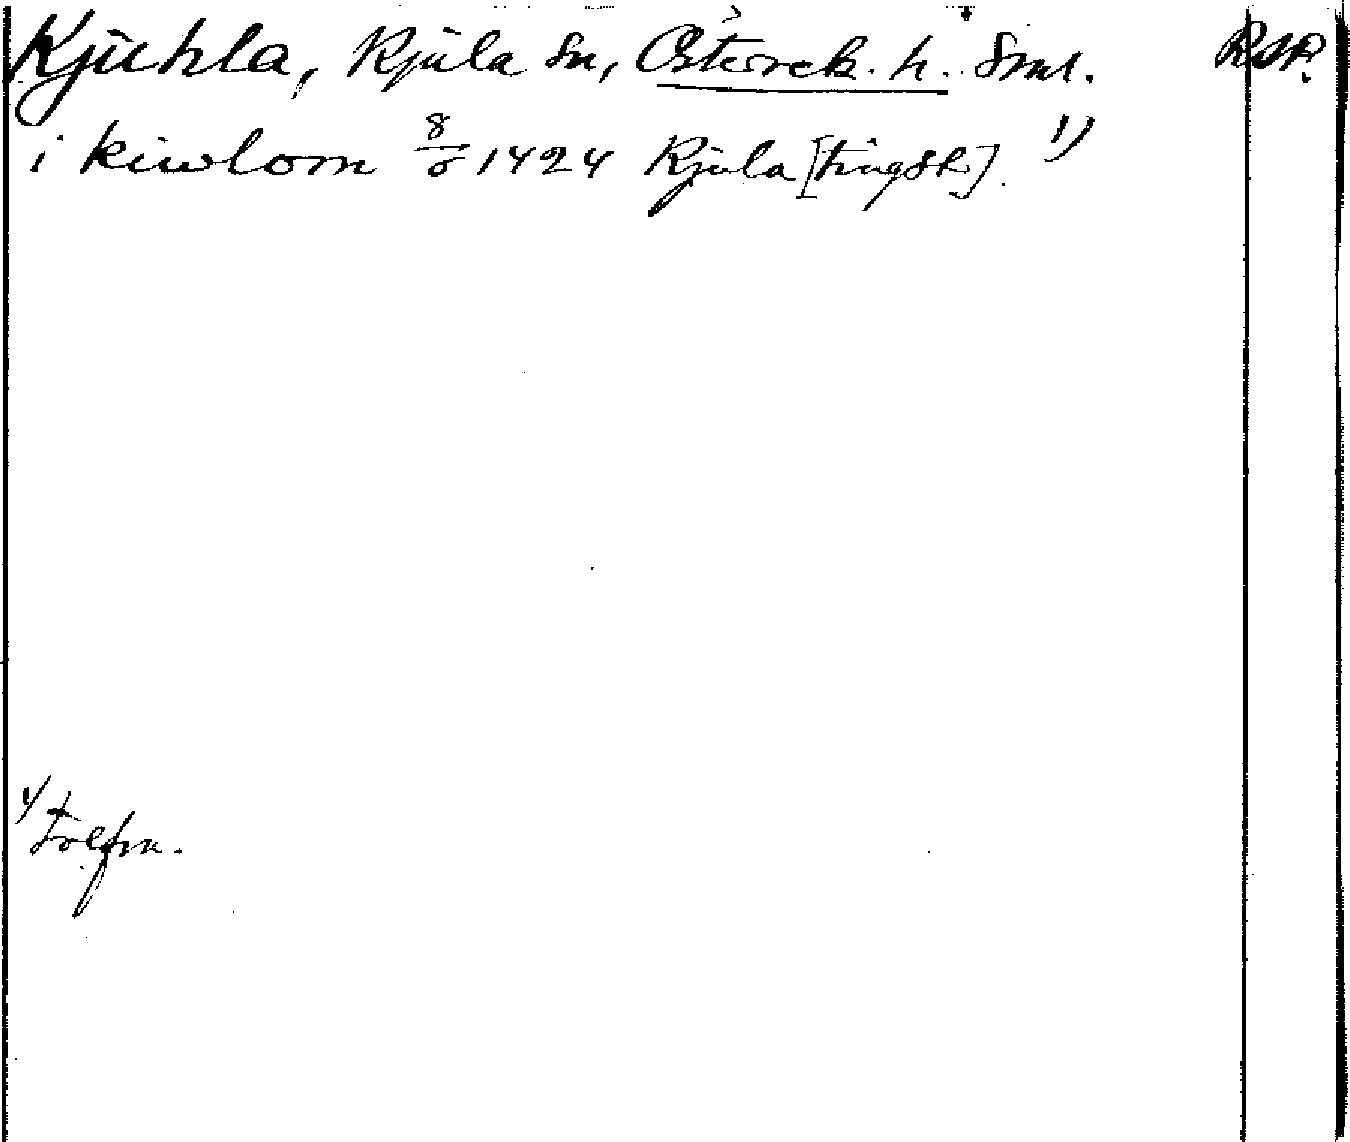 Kjuhla, Kjula sn, Österrek. h. Sml. RAP.
i kiwlom 8/6 1424 Kjula [tingst]. 1)
1)